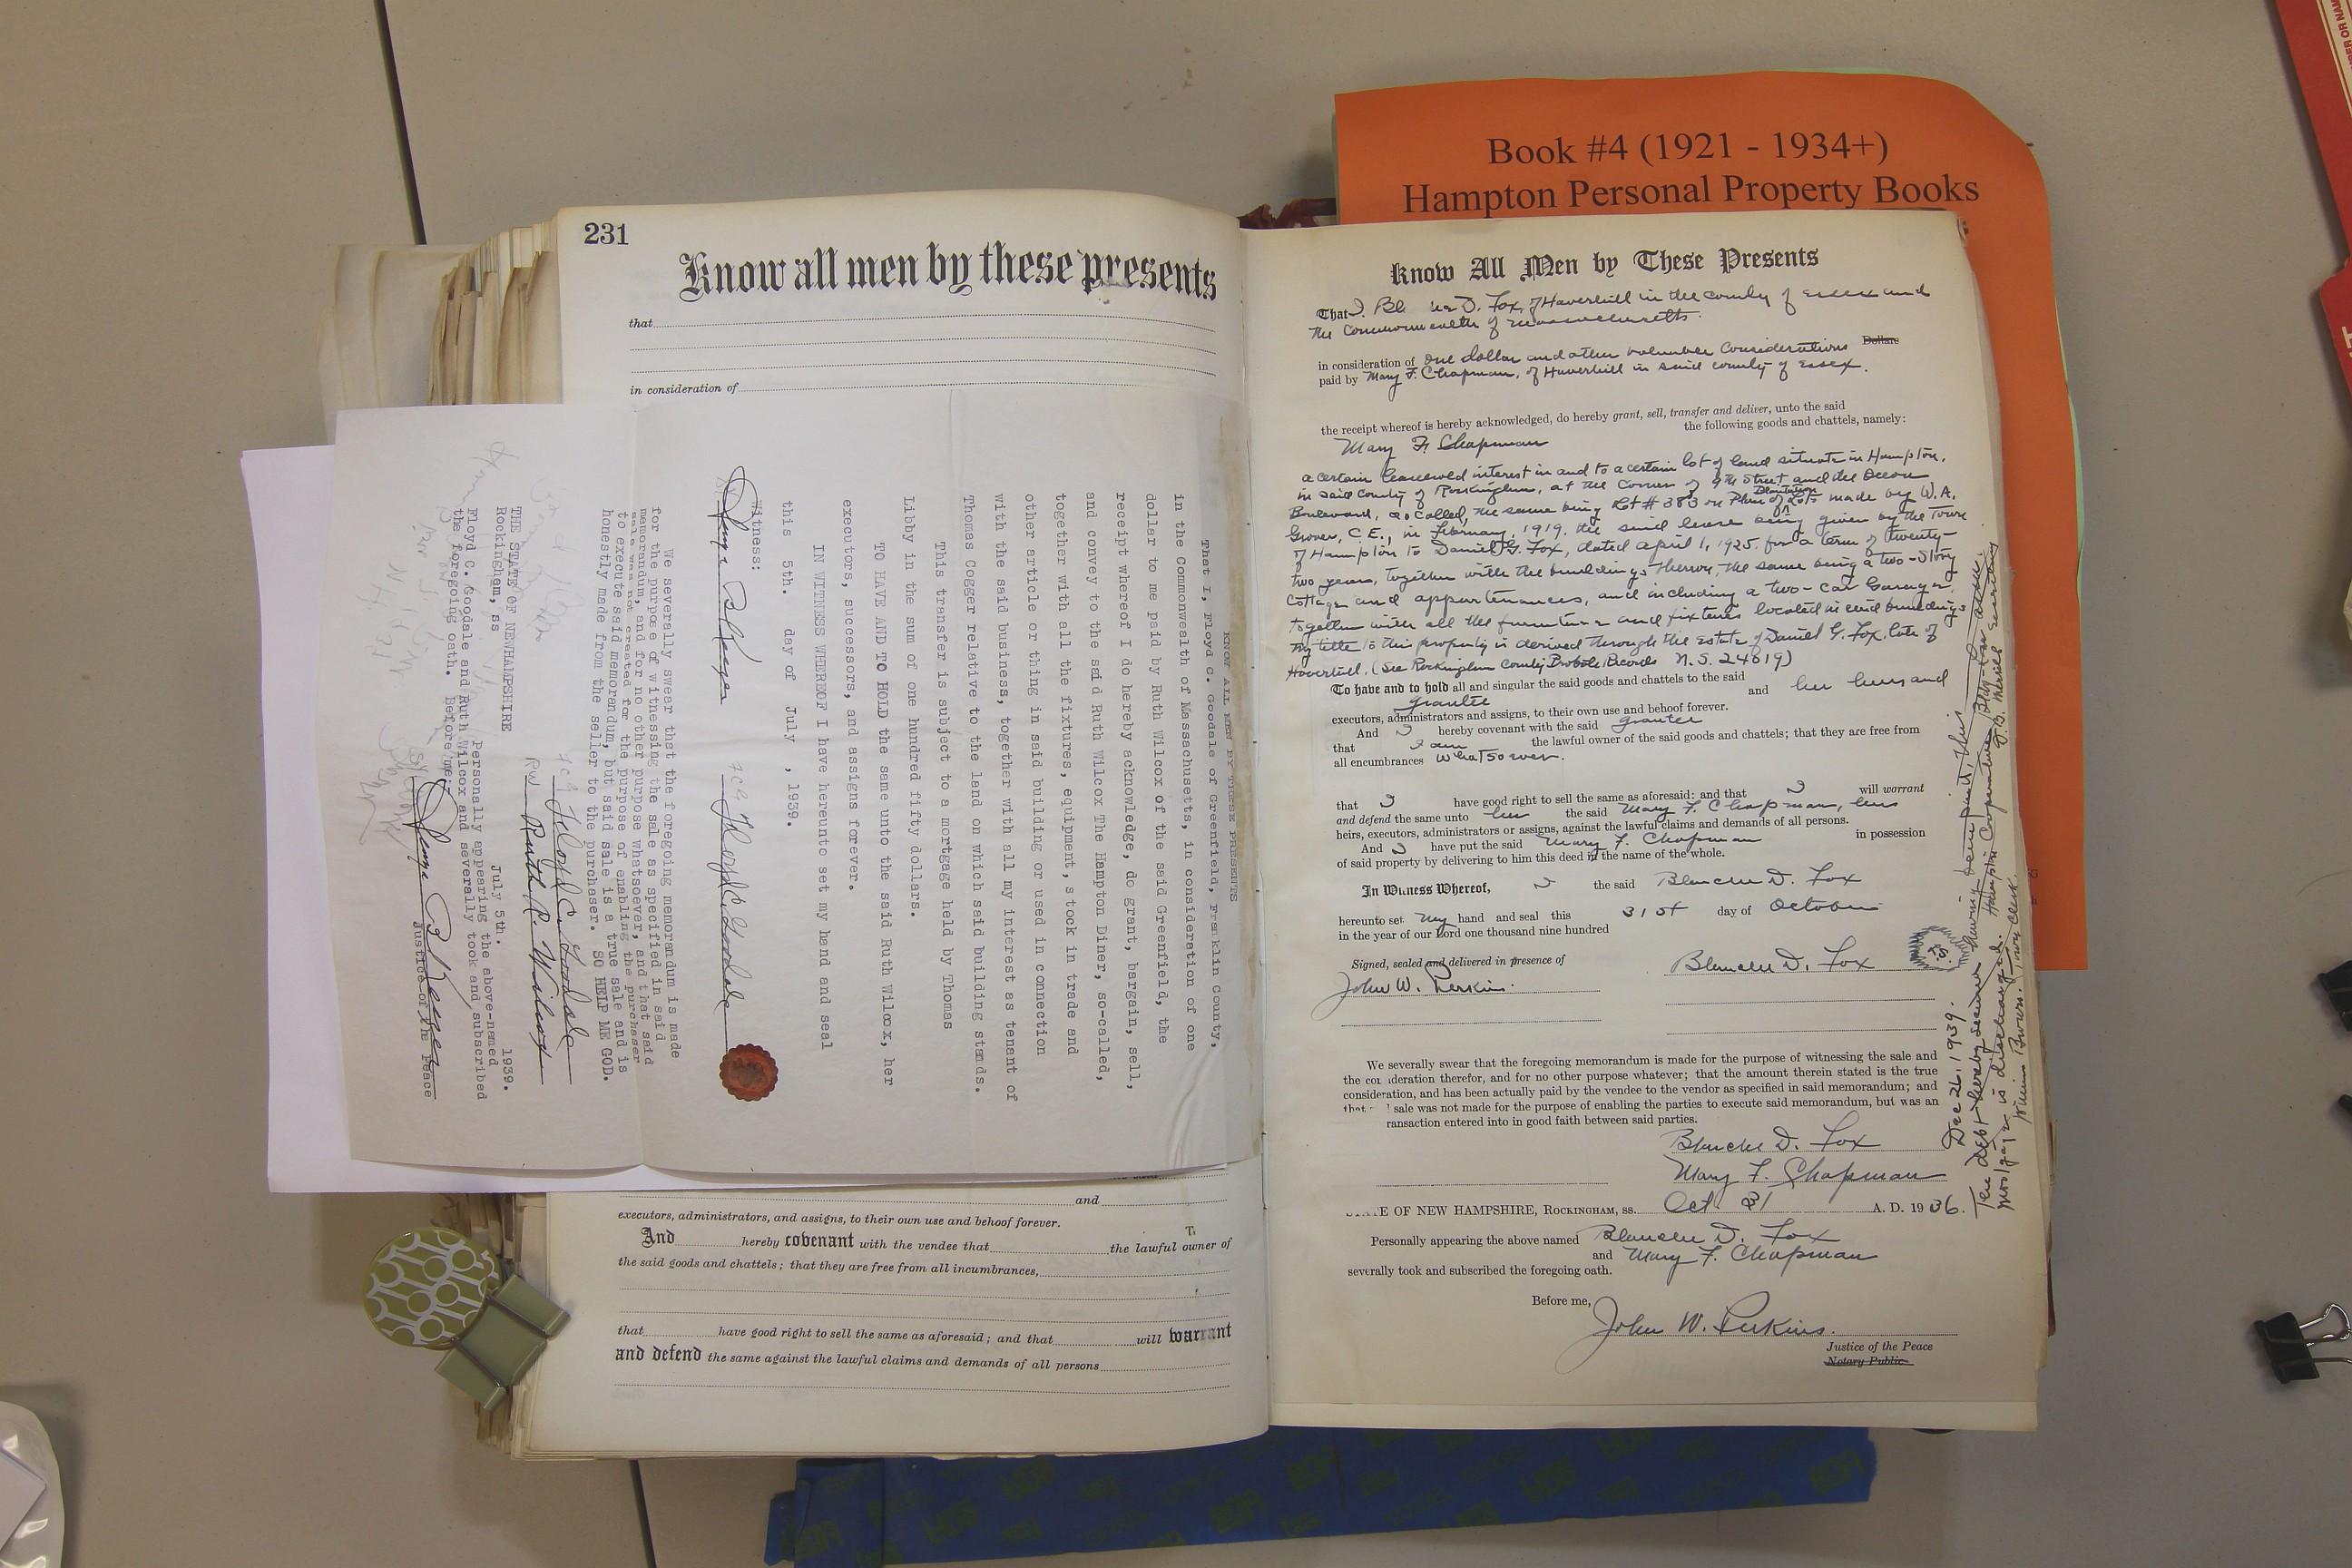 Book #4 (1921 - 1934+)
Hampton Personal Property Books
231
Know all men by these presents
that
in consideration of
KNOW ALL MEN BY THESE PRESENTS
That I, Floyd C. Goodale of Greenfield, Franklin County,
in the Commonwealth of Massachusetts, in consideration of one
dollar to me paid by Ruth Wilcox of the said Greenfield, the
receipt whereof I do hereby acknowledge, do grant, bargain, sell,
and convey to the said Ruth Wilcox The Hampton Diner, so-called,
together with all the fixtures, equipment, stock in trade and
other article or thing in said building or used in connection
with the said business, together with all my interest as tenant of
Thomas Cogger relative to the land on which said building stands.
This transfer is subject to a mortgage held by Thomas
Libby in the sum of one hundred fifty dollars.
TO HAVE AND TO HOLD the same unto the said Ruth Wilcox, her
executors, successors, and assigns forever.
IN WITNESS WHEREOF I have hereunto set my hand and seal
this 5th. day of July , 1939.
Witness:
FCG Floyd C. Goodale
We severally swear that the foregoing memorandum is made
for the purpose of witnessing the sale as specified in said
memorandum, and for no other purpose whatsoever, and that said
sale was not created for the purpose of enabling the purchaser
to execute said memorandum, but said sale is a true sale and is
honestly made from the seller to the purchaser. SO HELP ME GOD.
FCG Floyd C. Goodale
RW Ruth R. Wilcox
THE STATE OF NEW HAMPSHIRE
Rockingham, ss July 5th. 1939.
Personally appearing the above-named
Floyd C. Goodale and Ruth Wilcox and severally took and subscribed
the foregoing oath. Before me:
Justice of the Peace
and
executors, administrators, and assigns, to their own use and behoof forever.
And hereby covenant with the vendee that the lawful owner of
the said goods and chattels; that they are free from all incumbrances,
that have good right to sell the same as aforesaid; and that will warrant
and defend the same against the lawful claims and demands of all persons
Know All Men by These Presents
That I, Bl D. Fox, of Haverhill in the county of Essex and
the Commonwealth of Massachusetts.
in consideration of one dollar and other valuable considerations Dollars
paid by Mary F. Chapman, of Haverhill in said county of Essex.
the receipt whereof is hereby acknowledged, do hereby grant, sell, transfer and deliver, unto the said
Mary F. Chapman the following goods and chattels, namely:
a certain leasehold interest in and to a certain lot of land situate in Hampton,
in said County of Rockingham, at the corner of 9th Street and the Ocean
Boulevard, so called, the same being Lot # 383 on Plan of Plantation Lots made by W. A.
Grover, C.E., in February, 1919. the said lease being given by the Town
of Hampton to Daniel G. Fox, dated April 1, 1925. for a term of twenty-
two years, together with the buildings thereon, the same being a two-story
Cottage and appurtenances, and including a two-car Garage
together with all the furniture and fixtures located in said buildings
my title to this property is derived through the estate of Daniel G. Fox, late of
Haverhill. (See Rockingham County Probate Records N.S. 24619)
To have and to hold all and singular the said goods and chattels to the said
grantee and her heirs and
executors, administrators and assigns, to their own use and behoof forever.
And I hereby covenant with the said grantee
that I am the lawful owner of the said goods and chattels; that they are free from
all encumbrances whatsoever.
that I have good right to sell the same as aforesaid: and that I will warrant
and defend the same unto her the said Mary F. Chapman, her
heirs, executors, administrators or assigns, against the lawful claims and demands of all persons.
And I have put the said Mary F. Chapman in possession
of said property by delivering to him this deed in the name of the whole.
In Witness Whereof, I the said Blanche D. Fox
hereunto set my hand and seal this 31st day of October
in the year of our Lord one thousand nine hundred
Signed, sealed and delivered in presence of
Blanche D. Fox
John W. Perkins.
We severally swear that the foregoing memorandum is made for the purpose of witnessing the sale and
the consideration therefor, and for no other purpose whatever; that the amount therein stated is the true
consideration, and has been actually paid by the vendee to the vendor as specified in said memorandum; and
that sale was not made for the purpose of enabling the parties to execute said memorandum, but was an
ransaction entered into in good faith between said parties.
Blanche D. Fox
Mary F. Chapman
STATE OF NEW HAMPSHIRE, ROCKINGHAM, ss. Oct 31 A. D. 1936.
Personally appearing the above named Blanche D. Fox
and Mary F. Chapman
severally took and subscribed the foregoing oath.
Before me,
John W. Perkins.
Justice of the Peace
Notary Public
Dec 26, 1939.
The debt hereby secured having been paid, this
mortgage is discharged. Hampton Cooperative Bldg
Town Clerk.